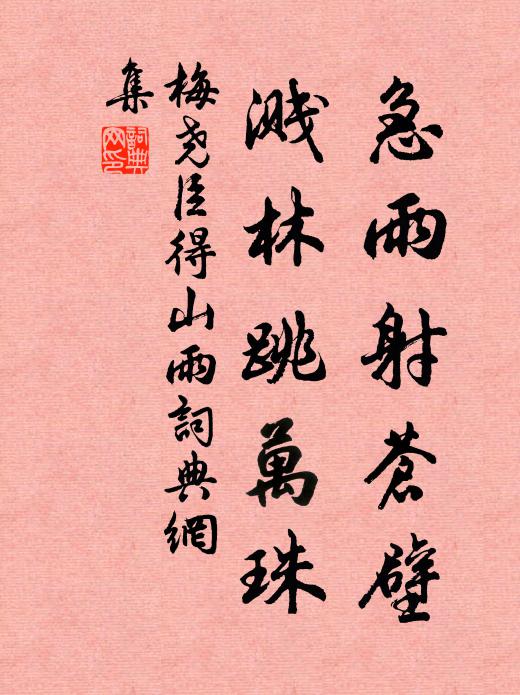 急雨射蒼壁
濺林跳萬珠
梅尧臣得山雨詞典網
集
詞典網印